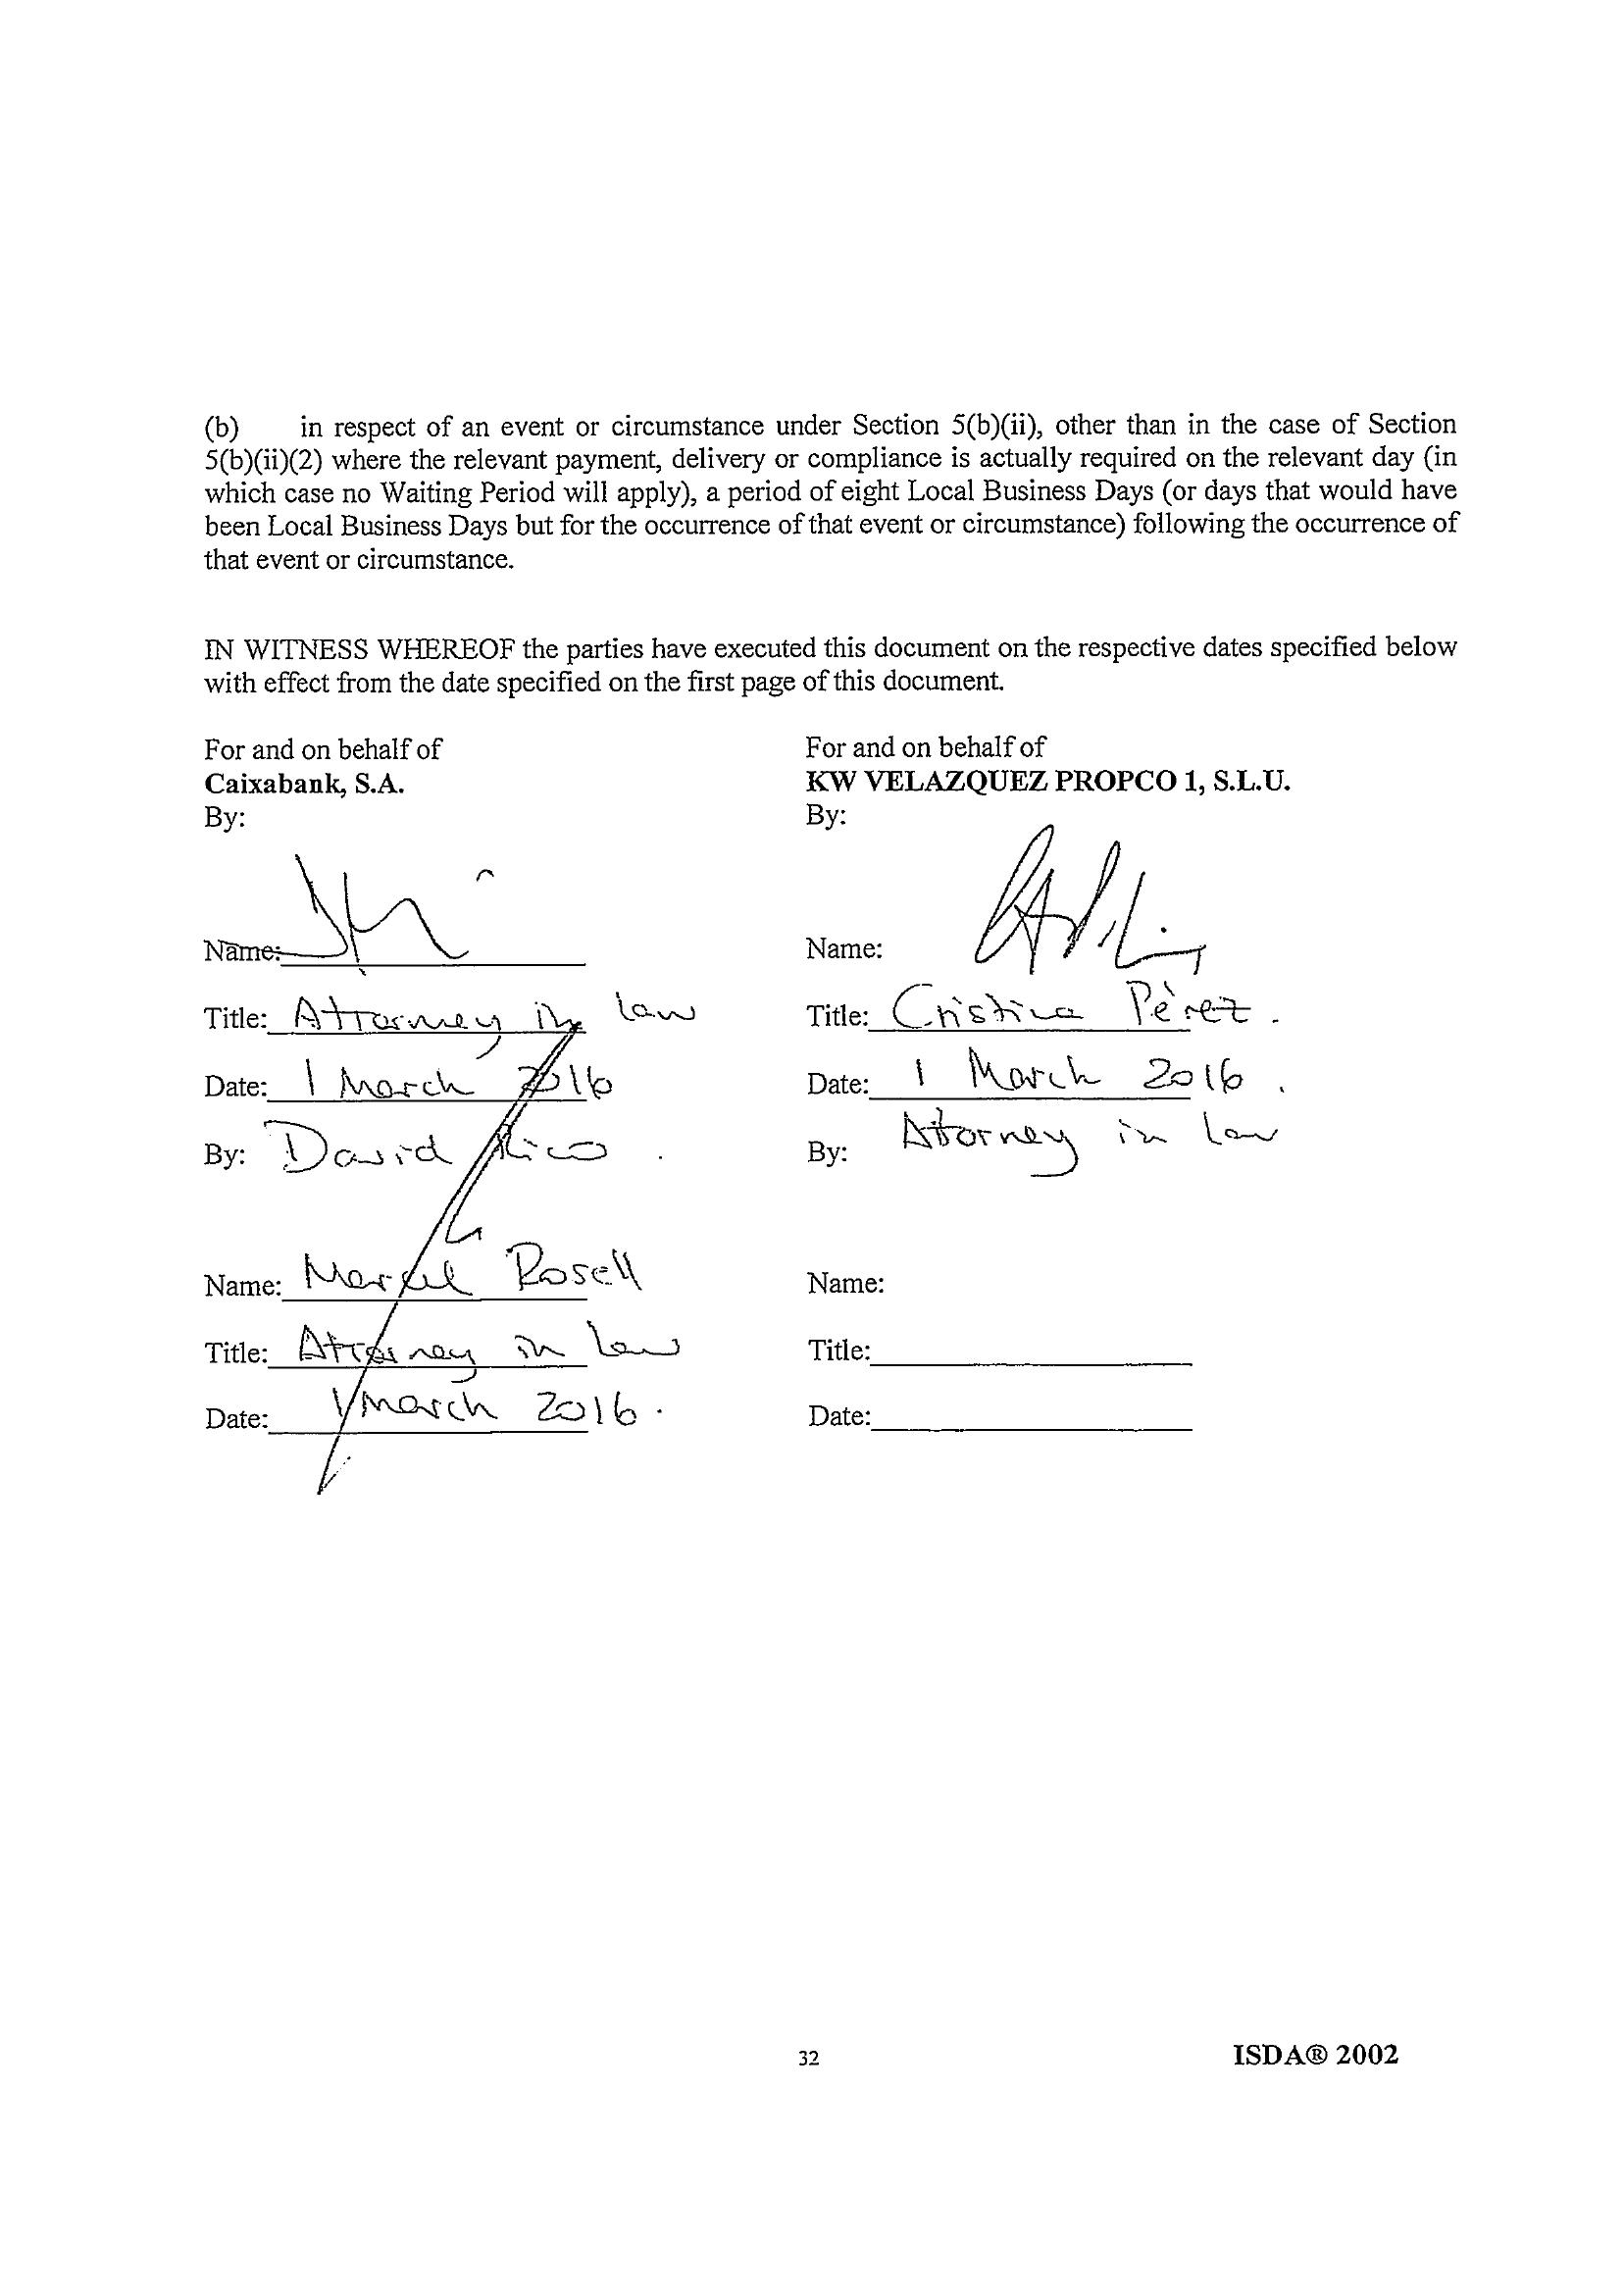 (b) in respect of an event or circumstance under Section 5(b)(ii), other than in the case of Section
5(b)(ii)(2) where the relevant payment, delivery or compliance is actually required on the relevant day (in
which case no Waiting Period will apply), a period of eight Local Business Days (or days that would have
been Local Business Days but for the occurrence of that event or circumstance) following the occurrence of
that event or circumstance.
IN WITNESS WHEREOF the parties have executed this document on the respective dates specified below
with effect from the date specified on the first page of this document.
For and on behalf of
Caixabank, S.A.
By:
Name:
Title: Attorney in law
Date: 1 March 2016
By: David Rico.
Name: Marcel Rosell
Title: Attorney in law
Date: 1 March 2016.
For and on behalf of
KW VELAZQUEZ PROPCO 1, S.L.U.
By:
Name:
Title: Cristina Pèrez.
Date: 1 March 2016.
By: Attorney in law
Name:
Title:
Date:
32
ISDA® 2002